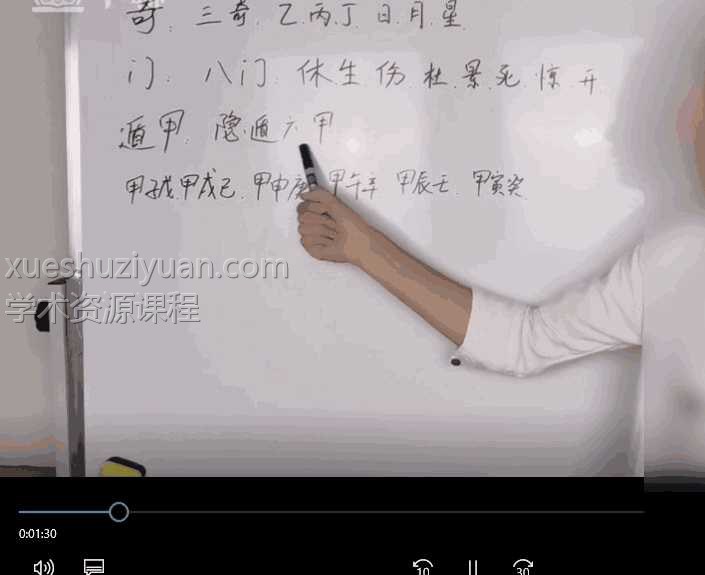 奇: 三奇. 乙.丙.丁 日.月.星
门: 八门. 休生伤杜景死惊开
遁甲: 隐遁六甲
甲子戊.甲戌己.甲申庚.甲午辛 甲辰壬.甲寅癸
xueshuziyuan.com
学术资源课程
0:01:30
10
30